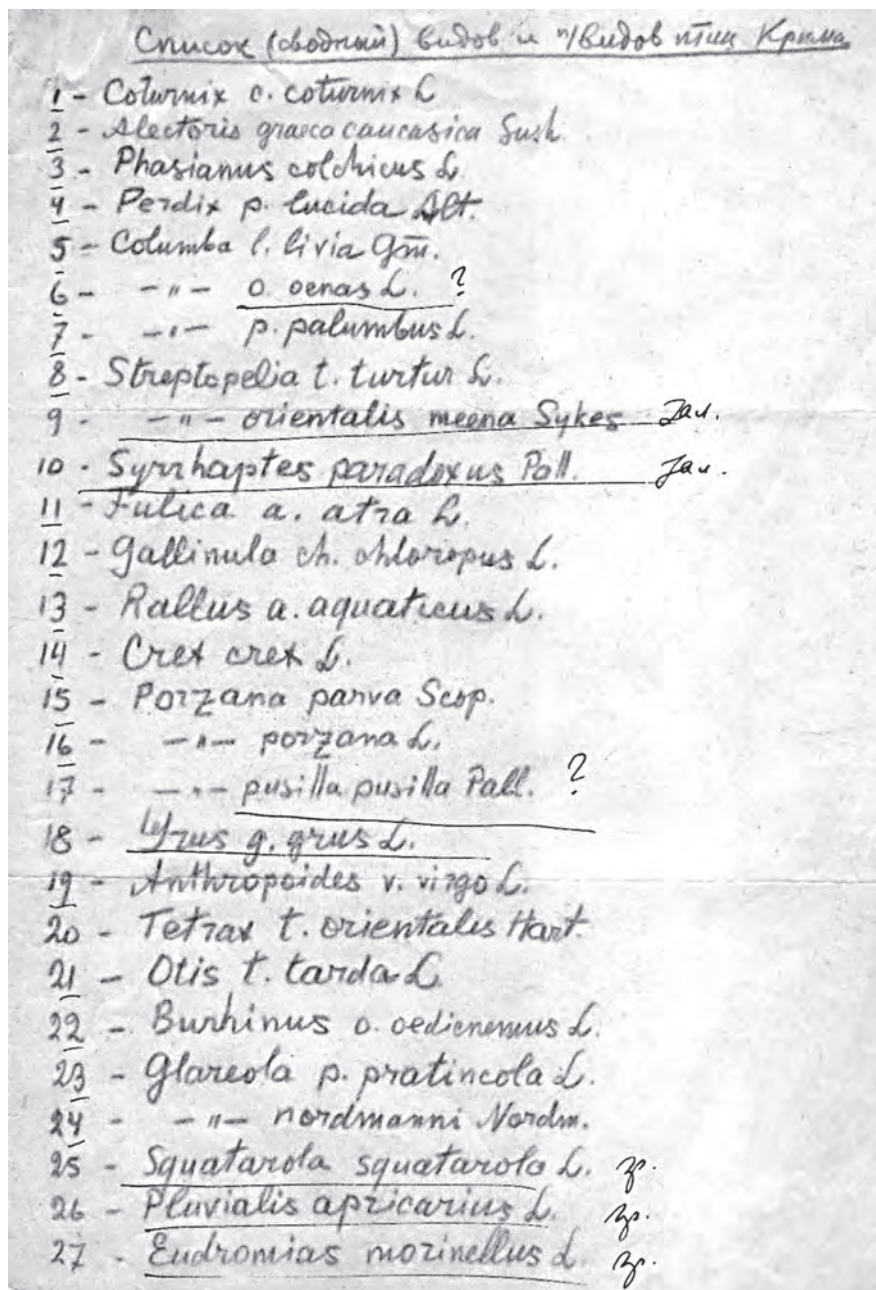 Список (сводный) видов и п/видов птиц Крыма
1 - Coturnix c. coturnix L
2 - Alectoris graeca caucasica Sush.
3 - Phasianus colchicus L.
4 - Perdix p. lucida Alt.
5 - Columba l. livia Gm.
6 - -"- o. oenas L. ?
7 - -"- p. palumbus L.
8 - Streptopelia t. turtur L.
9 - -"- orientalis meena Sykes Зал.
10 - Syrrhaptes paradoxus Pall. Зал.
11 - Fulica a. atra L.
12 - Gallinula ch. chloropus L.
13 - Rallus a. aquaticus L.
14 - Crex crex L.
15 - Porzana parva Scop.
16 - -"- porzana L.
17 - -"- pusilla pusilla Pall. ?
18 - Grus g. grus L.
19 - Anthropoides v. virgo L.
20 - Tetrax t. orientalis Hart.
21 - Otis t. tarda L
22 - Burhinus o. oedicnemus L.
23 - Glareola p. pratincola L.
24 - -"- nordmanni Nordm.
25 - Squatarola squatarola L.
26 - Pluvialis apricarius L.
27 - Eudromias morinellus L.